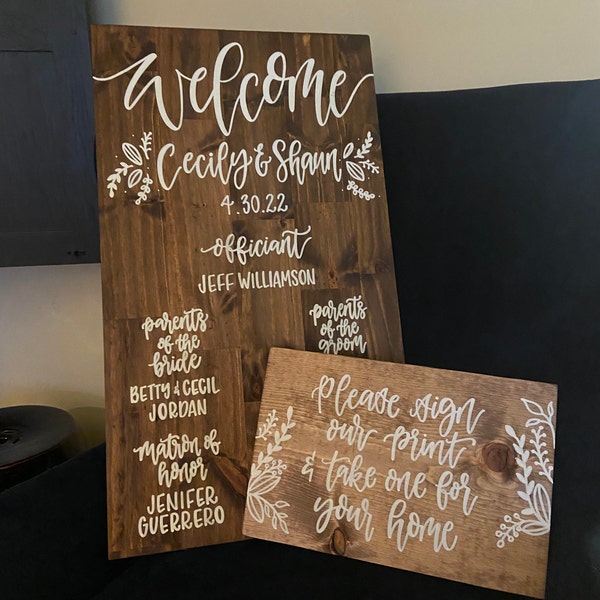 Welcome
Cecily & Shaun
4.30.22
officiant
JEFF WILLIAMSON
parents
of the
bride
BETTY & CECIL
JORDAN
matron of
honor
JENIFER
GUERRERO
parents
of the
groom
Please sign
our print
& take one for
your home